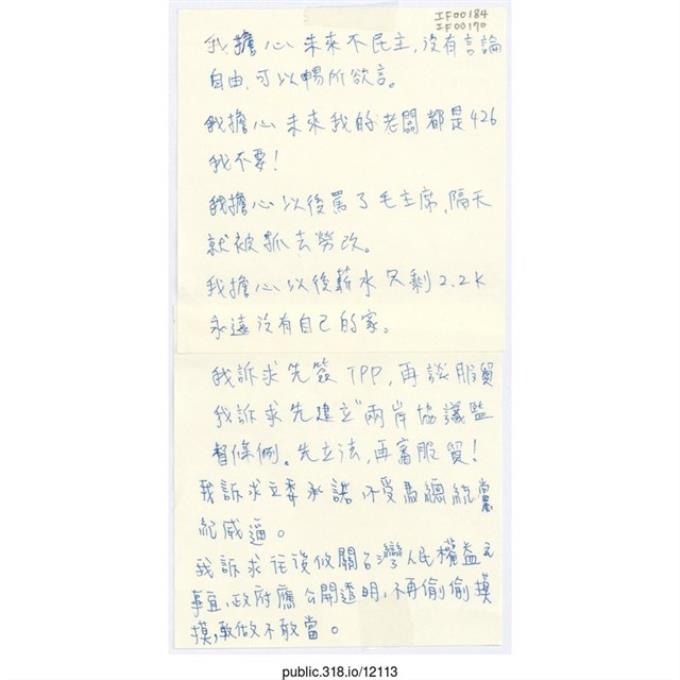 IF00184
IF00170
我擔心未來不民主,沒有言論
自由,可以暢所欲言。
我擔心未來我的老闆都是426
我不要!
我擔心以後罵了毛主席,隔天
就被抓去勞改。
我擔心以後薪水只剩2.2K
永遠沒有自己的家。
我訴求先簽TPP,再談服貿
我訴求先建立"兩岸協議監
督條例。先立法,再審服貿!
我訴求立委承諾不受馬總統黨
紀威逼。
我訴求往後攸關台灣人民權益之
事宜,政府應公開透明,不再偷偷摸
摸,敢做不敢當。
public.318.io/12113